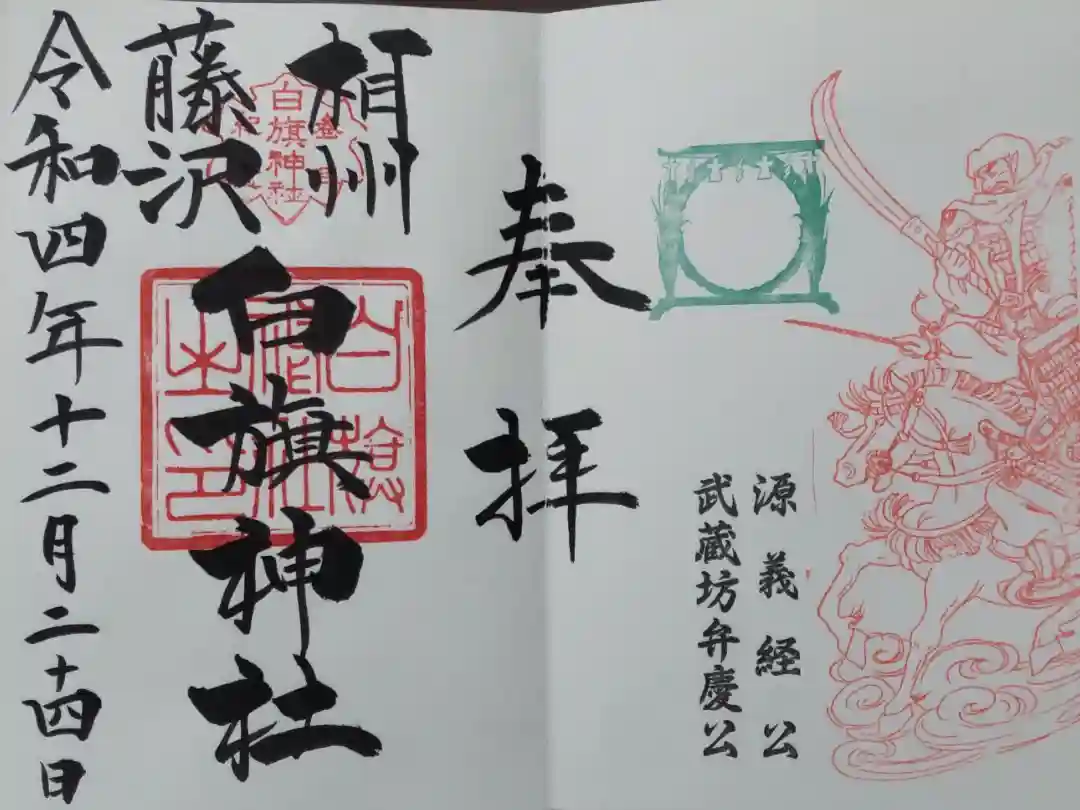 源義経公
武蔵坊弁慶公
奉拝
相州
藤沢
白旗神社
白旗神社
令和四年十二月二十四日